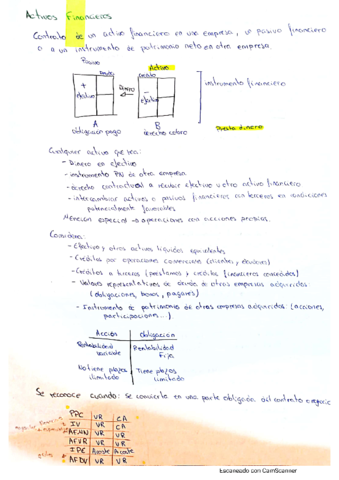 Activos Financieros
Contrato de un activo financiero en una empresa, un pasivo financiero
o a un instrumento de patrimonio neto en otra empresa
Pasivo
Activo
Deudor
+
efectivo
Dinero
-
efectivo
instrumento financiero
A
B
obligación pago
derecho cobro
Presta dinero
Cualquier activo que sea:
- Dinero en efectivo
- instrumento PN de otra empresa
- derecho contractual a recibir efectivo u otro activo financiero
- intercambiar activos o pasivos financieros con terceros en condiciones
potencialmente favorables
Mención especial → operaciones con acciones propias.
Considera:
- Efectivo y otros activos líquidos equivalentes
- Créditos por operaciones comerciales (clientes, deudores)
- Créditos a terceros (préstamos y créditos financieros concedidos)
- Valores representativos de deuda de otras empresas adquiridos
(obligaciones, bonos, pagarés)
- Instrumento de patrimonio de otras empresas adquiridos (acciones,
participaciones...)
Acción
Obligación
Rentabilidad variable
Rentabilidad Fija
No tiene plazos
ilimitado
Tiene plazos
limitado
Se reconoce cuando: Se convierte en una parte obligada del contrato
PPC VR CA
IV VR CA
VR VR
AFVR VR VR
Coste Coste
VR VR
Escaneado con CamScanner